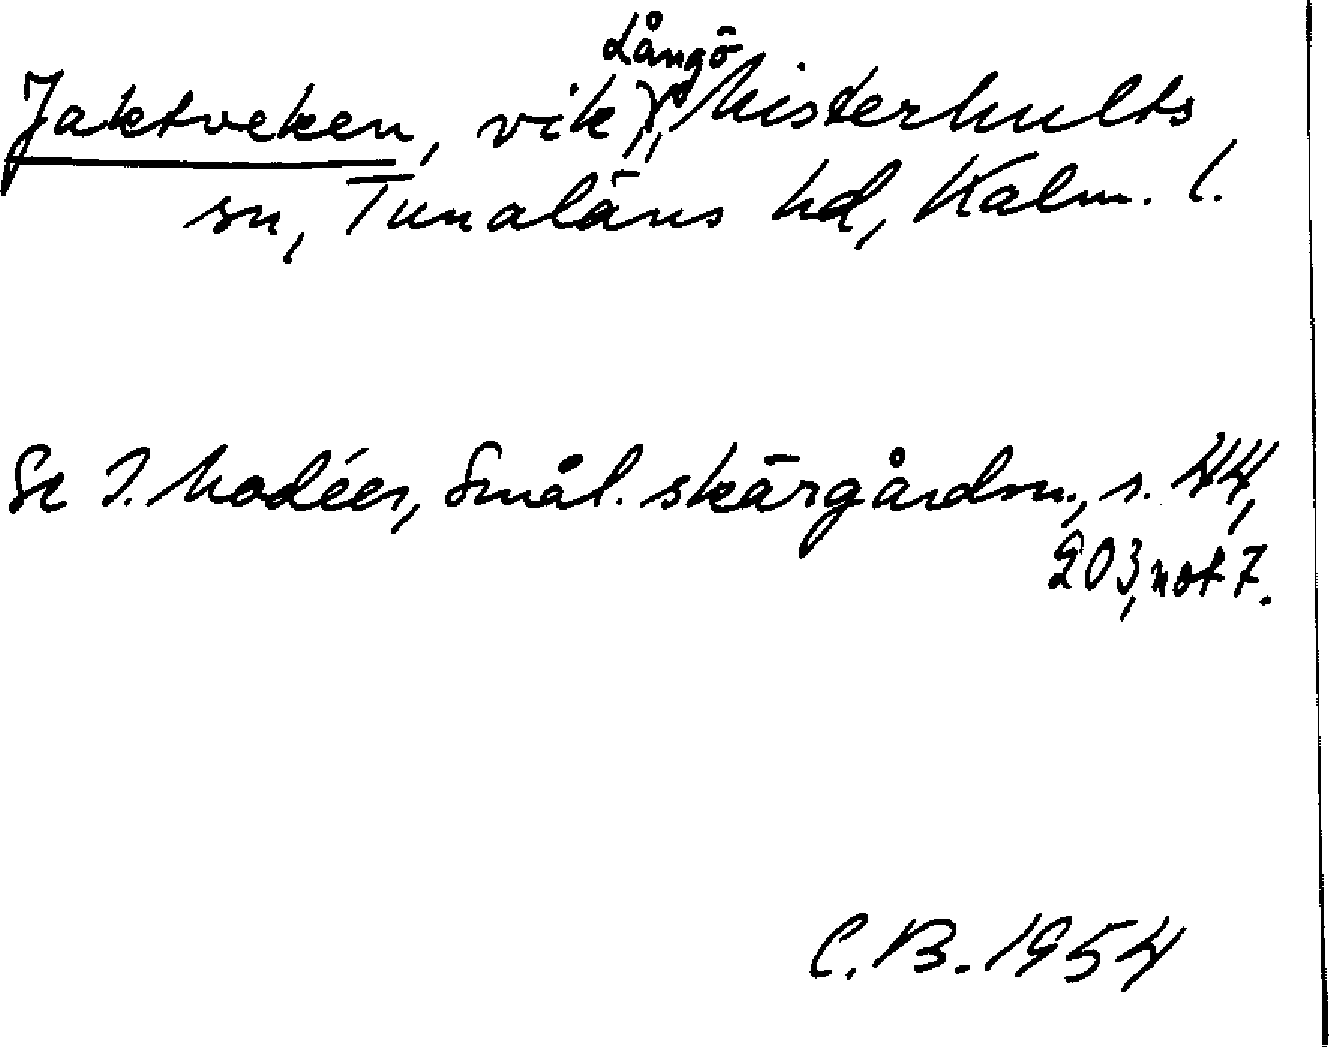 Långö
Jaktveken, vik, Misterhults
sn, Tunaläns hd, Kalm. l.
Se I. Modéer, Smål. skärgårdsn., s. 44,
203, not 7.
C.B. 1954